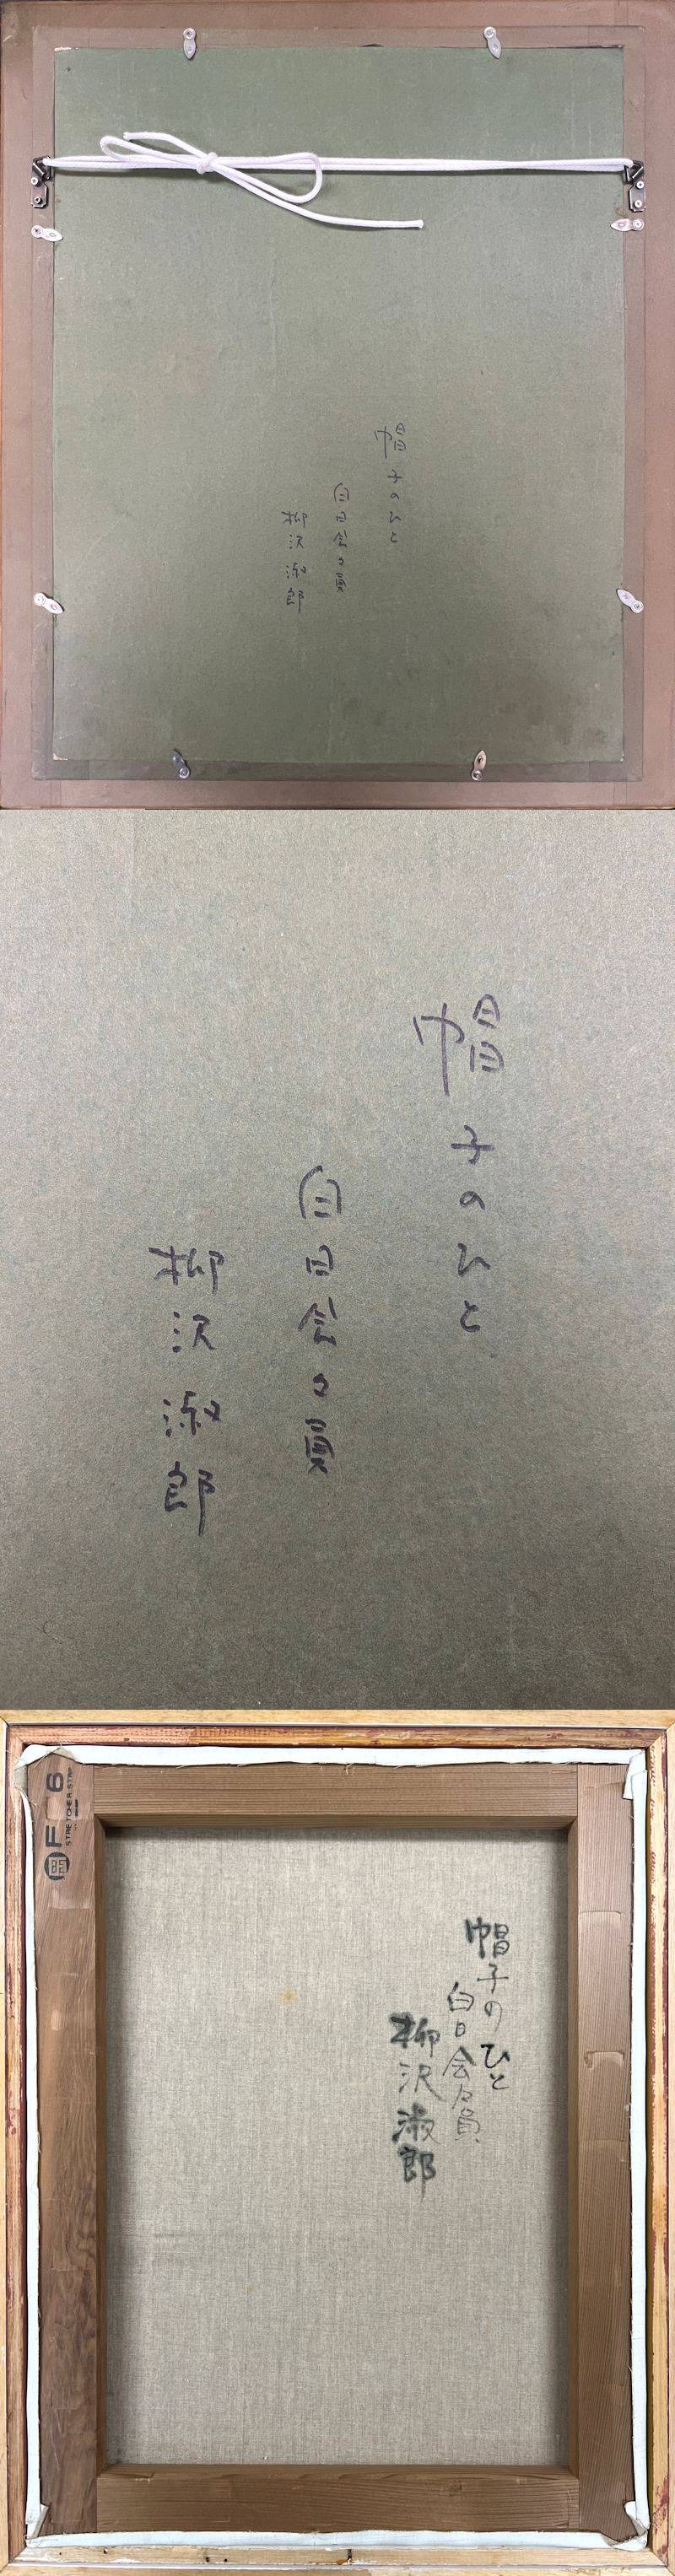 帽子のひと
白日会々員
柳沢淑郎
帽子のひと
白日会々員
柳沢淑郎
F 6
STRETCHER STRIP
帽子のひと
白日会々員
柳沢淑郎